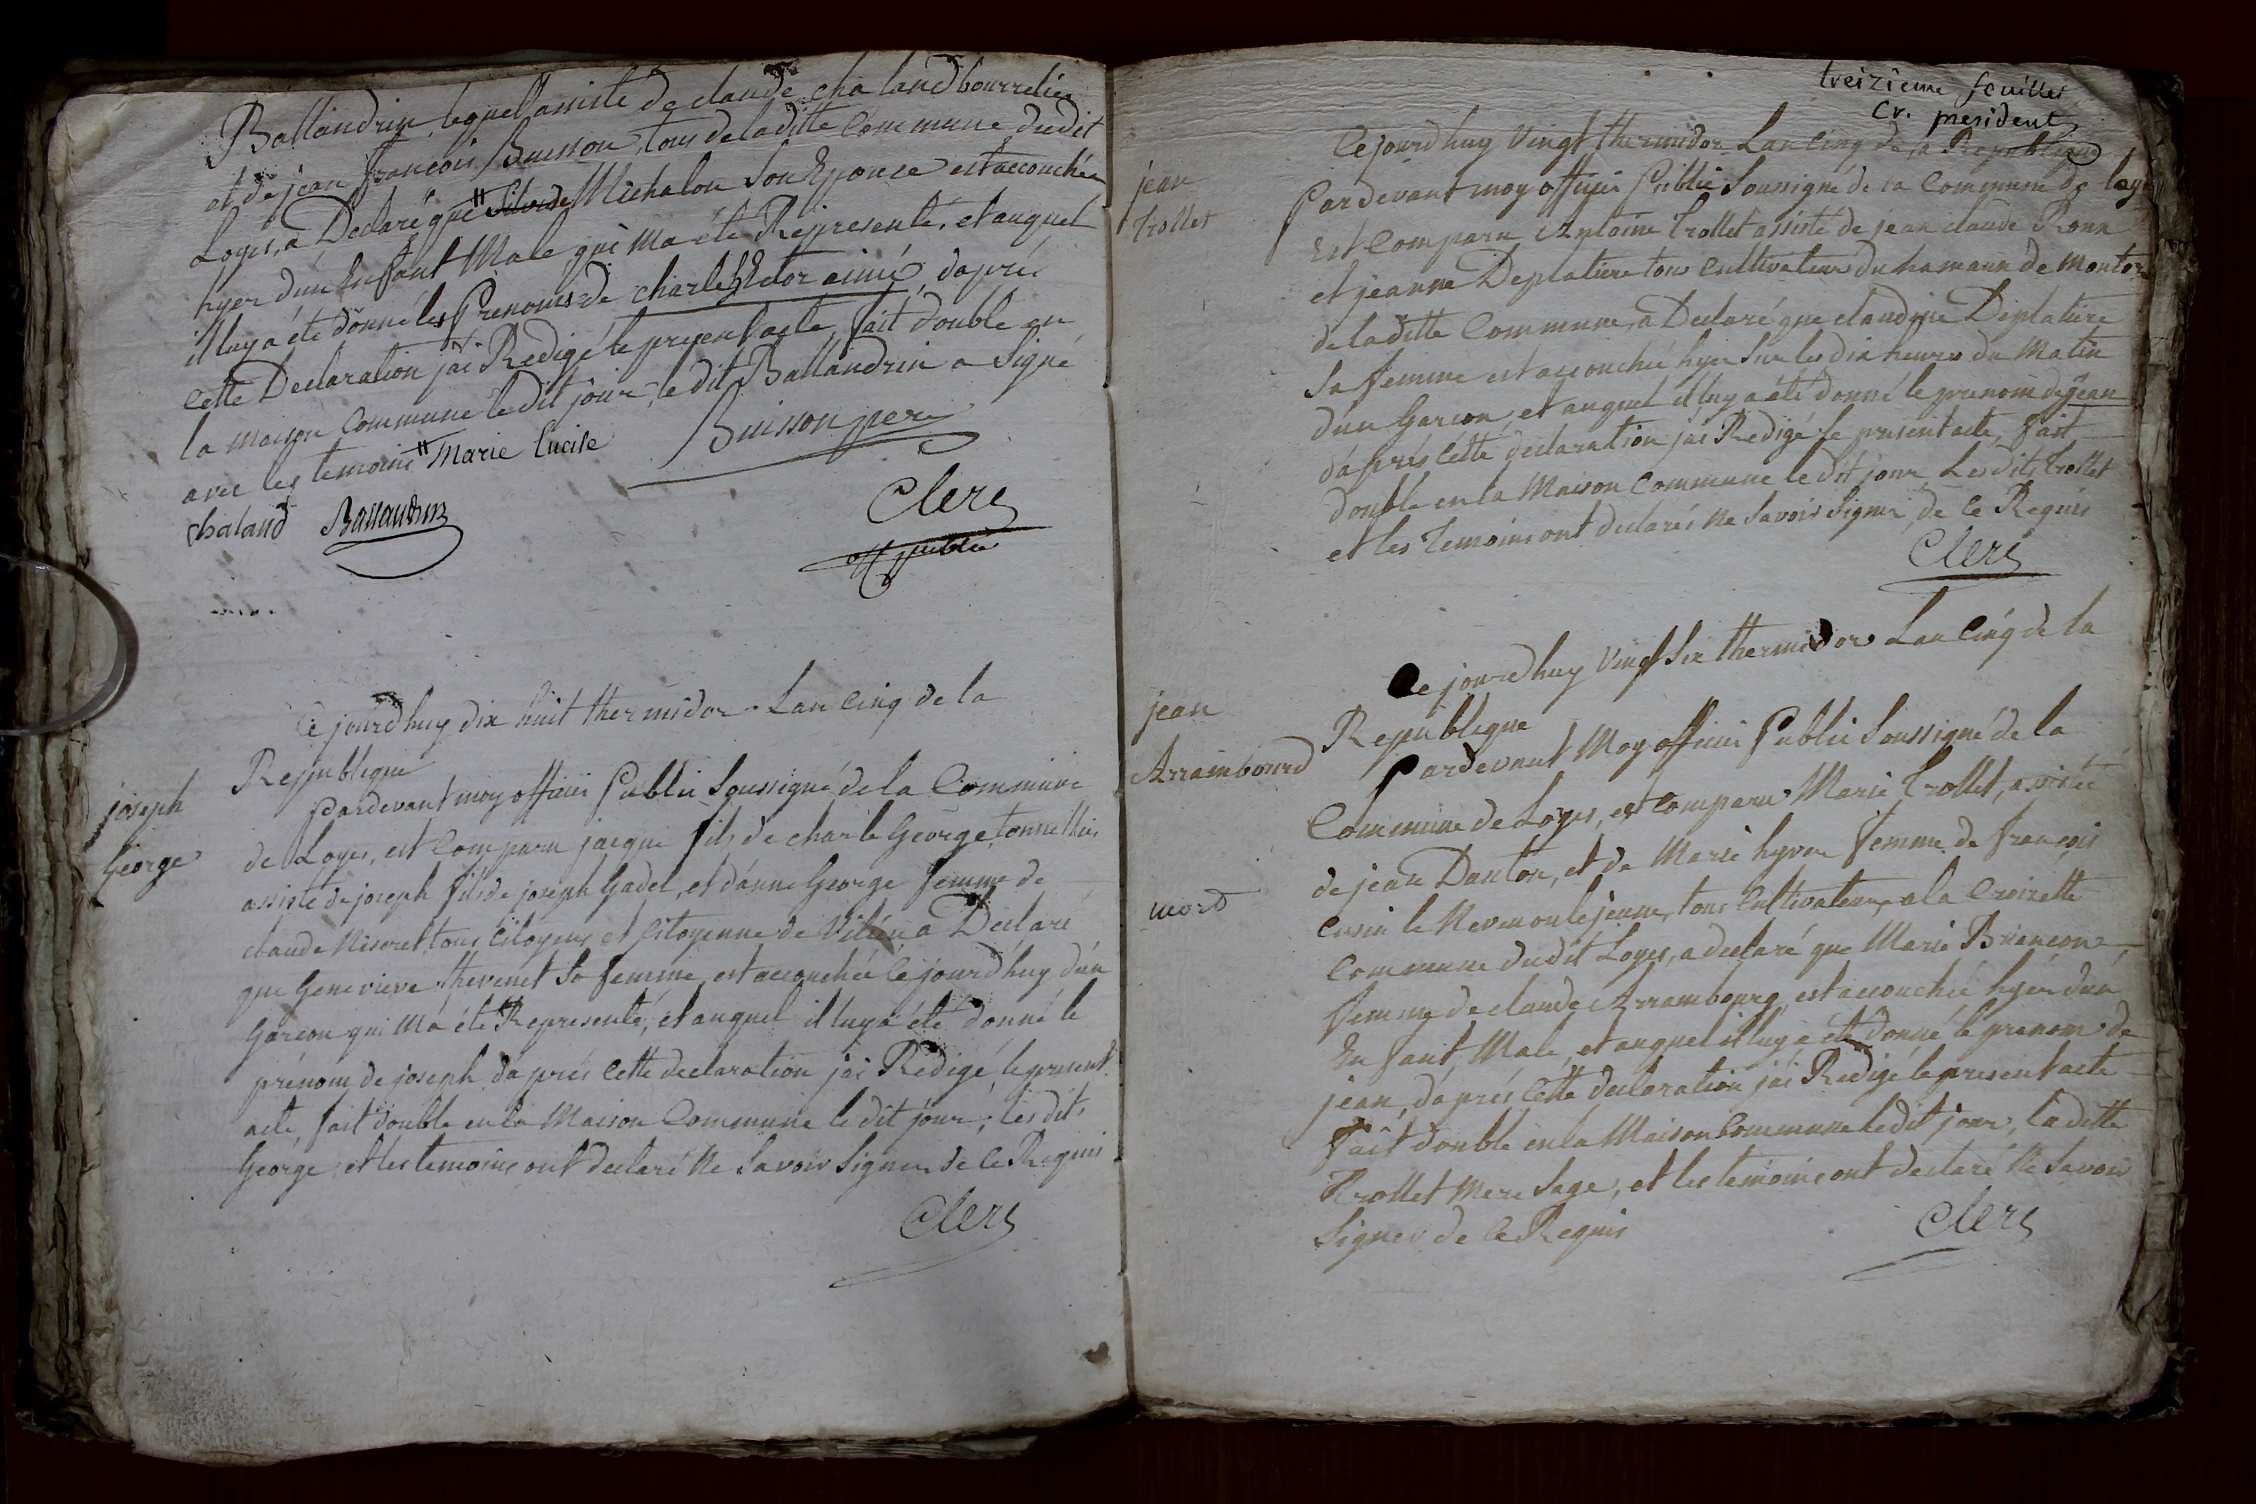 Ballandrin lequel assisté de claude chaland bourrelier
et de jean françois Buisson, tous de laditte Commune dudit
Loyes, a Declaré que Michalon Son Epouse est accouchée
hyer d'un Enfant Male qui ma été Représenté, et auquel
il luy a été donné les Prenoms de charle hector aimé, daprés
Cette Declaration jai Redigé le present acte, fait double en
la maison Commune ledit jour, ledit Ballandrin a Signé
avec les temoins " Marie Lucile
Buisson pere
chaland Ballandrin
Clerc
off publie
Ce jourdhuy dix huit thermidor Lan Cinq de la
Republique
joseph
George
Pardevant moy officier Public Soussigné de la Commune
de Loyes, est Comparu jacque fils de charle George, tonnellier
assisté de joseph fils de joseph Gadel, et danne George femme de
claude tous Citoyens et Citoyenne de a Declaré
que Genevieve thevenet Sa femme est accouchée Cejourdhuy d'un
Garcon qui Ma été Representé, et auquel il luy a été donné le
prénom de joseph, daprés Cette declaration jai Redigé le present
acte, fait double en la Maison Commune le dit jour; Les dits
George et les temoins ont declaré Ne Savoir Signer de Ce Requis
Clerc
treizieme feuillet
Cr. president
jean
trollet
Cejourdhuy Vingt thermidor Lan Cinq de la Republique
Pardevant moy officier Public Soussigné de la Commune de Loyes
Est Comparu Antoine trollet assisté de jean claude Ronn
et jeanne Deplature tous Cultivateurs du hamaux de
de laditte Commune, a Declaré que claudine Deplature
Sa femme est accouchée hyer Sur les dix heures du Matin
d'un Garcon, et auquel il luy a été donné le prenom de jean
daprés Cette declaration jai Redigé le present acte, fait
double en la Maison Commune le dit jour, Lesdits trollet
et les Temoins ont declarés Ne Savoir Signer, de Ce Requis
Clerc
Ce jourdhuy Vingt Six thermidor Lan Cinq de la
Republique
jean
Arrambourd
mord
Pardevant Moy officier Public Soussigné de la
Commune de Loyes, est Comparu Marie trollet, assistée
de jean Danton, et de Marie hyver femme de françois
Cusin le jeune, tous Cultivateurs a la Croizette
Commune dudit Loyes, a declaré que Marie Briancon
femme de claude Arrambourg, est accouchée hyer d'un
Enfant Male, et auquel il luy a été donné le prenom de
jean, daprés Cette declaration jai Redigé le present acte
fait double en la Maison Commune ledit jour, laditte
trollet Mere Sage, et les temoins ont declaré Ne Savoir
Signer de Ce Requis
Clerc